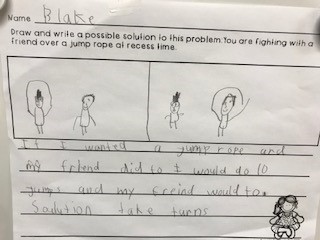 Name Blake
Draw and write a possible solution to this problem: You are fighting with a
friend over a jump rope at recess time.
If I wanted a jump rope and
my friend did to I would do 10
jumps and my freind would to.
Sadution take turns